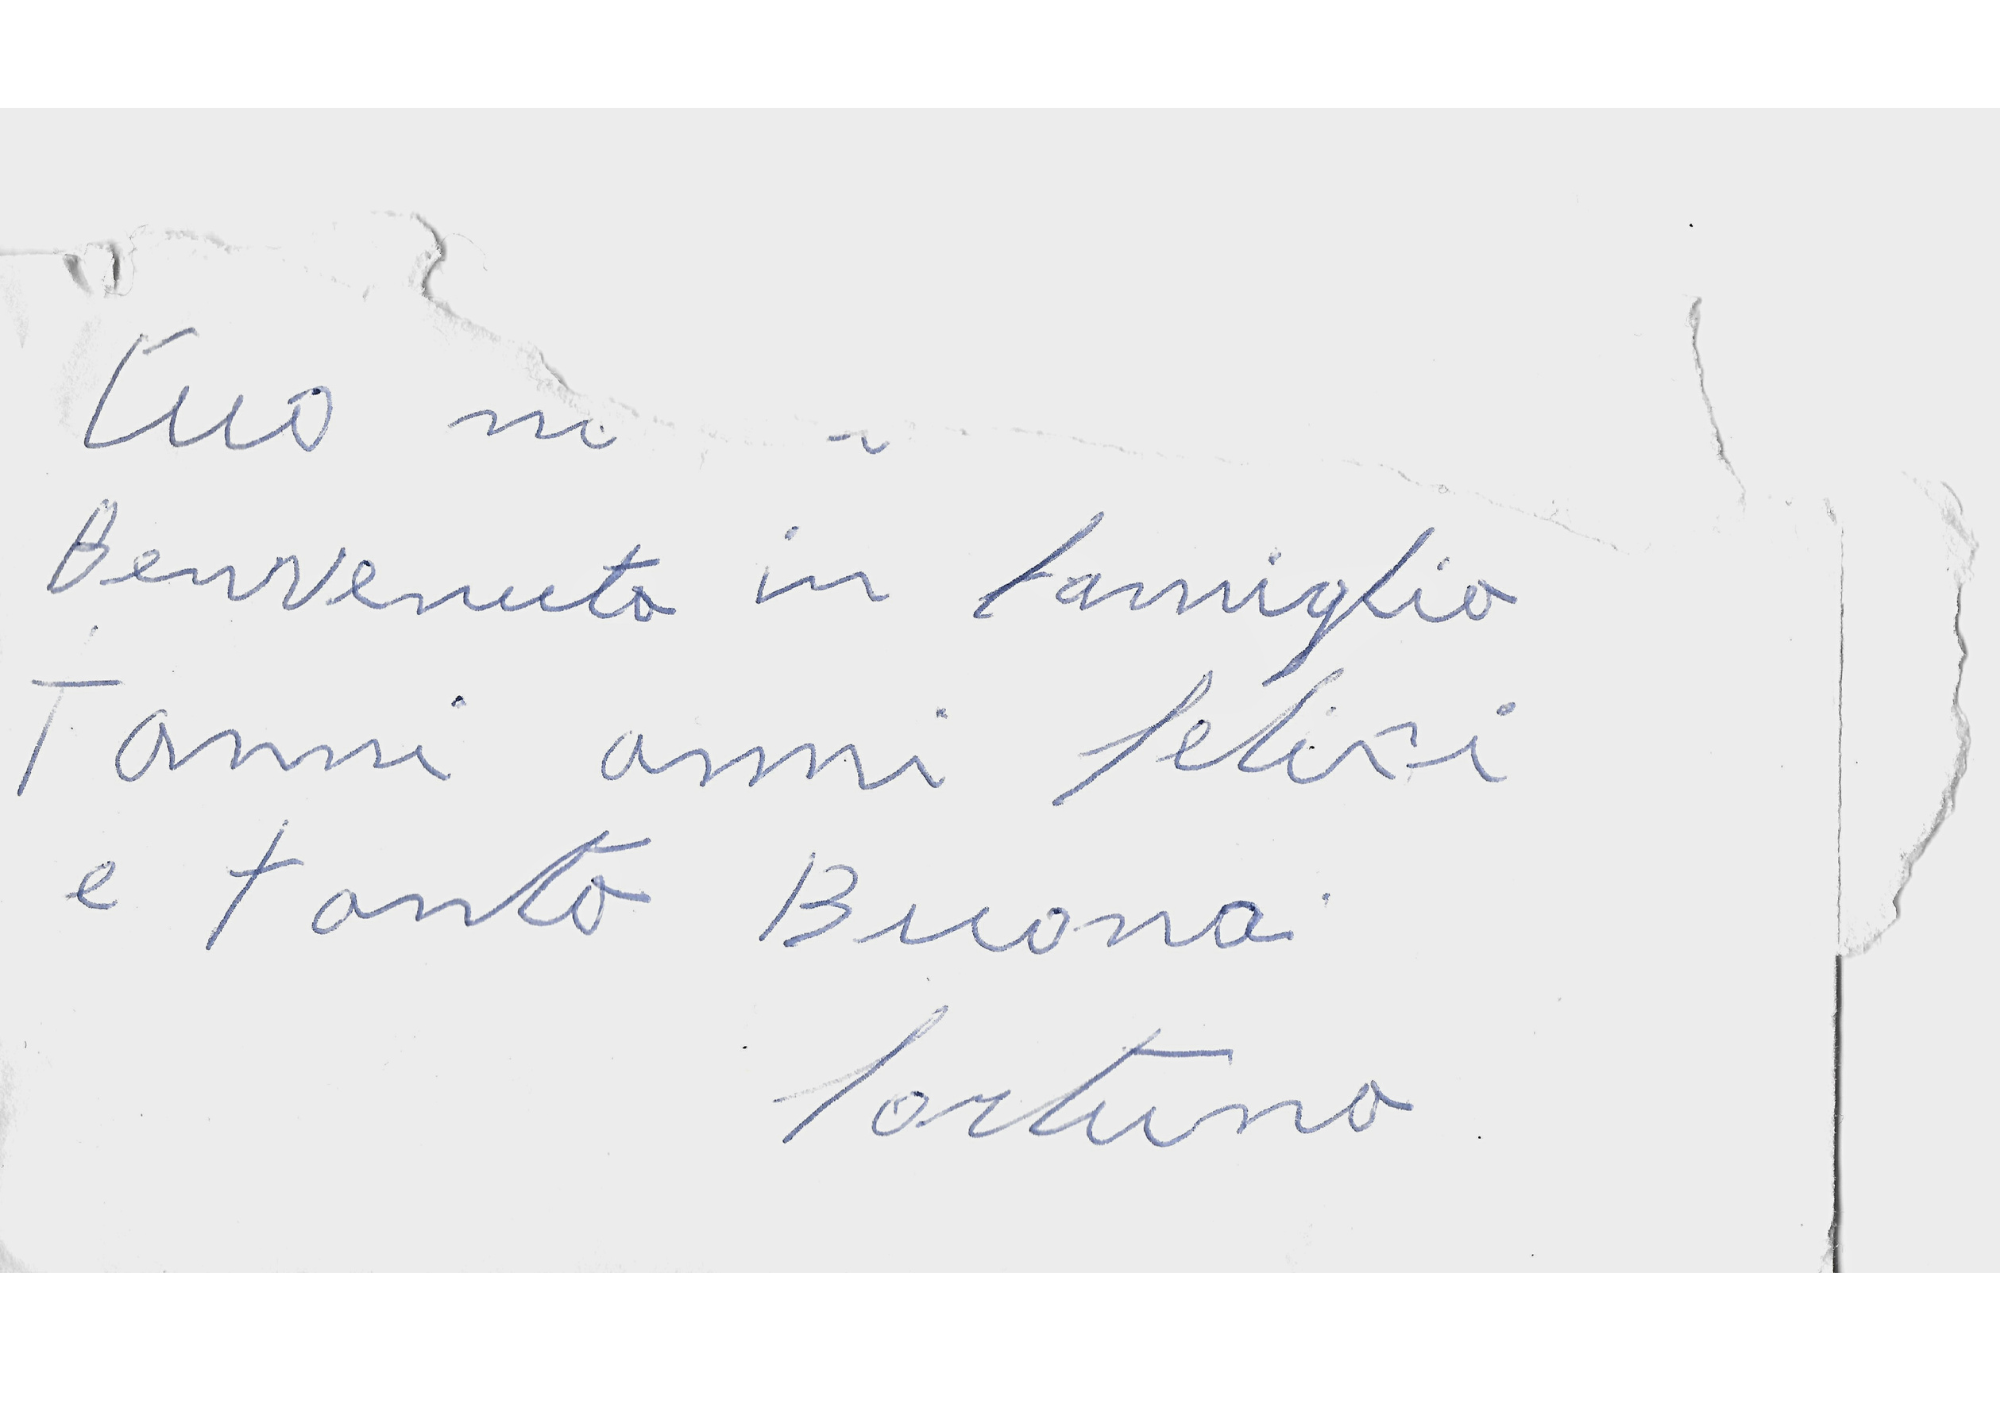 tuo
Benvenuto in famiglia
Tanni anni felici
e tanta Buona
fortuna